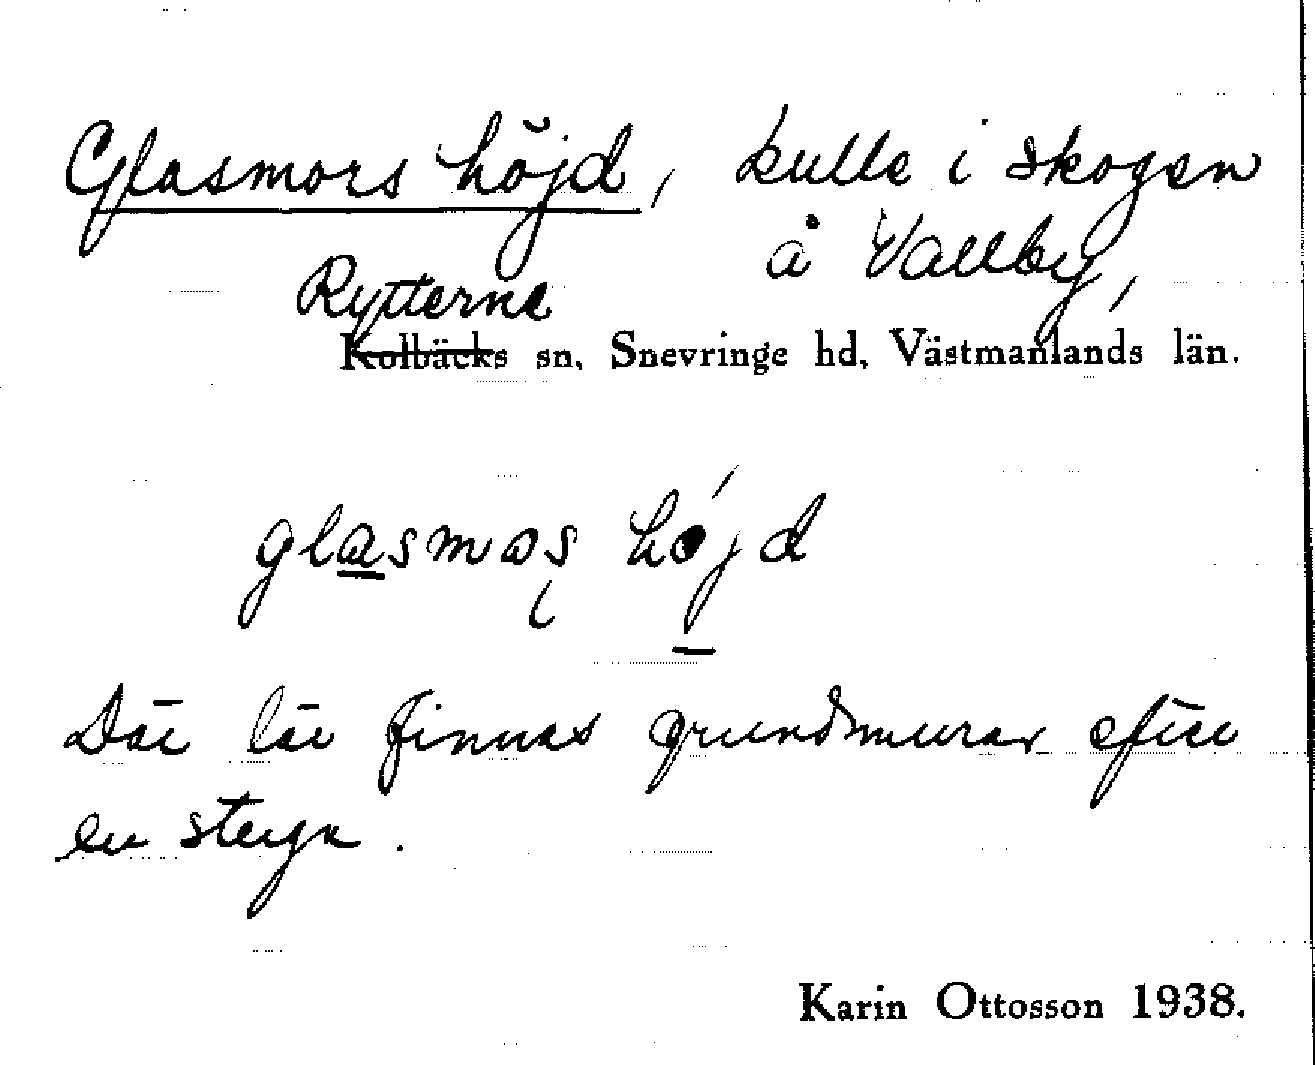 Glasmors höjd, kulle i skogen
å Vallby,
Rytterne
Kolbäcks sn, Snevringe hd, Västmanlands län.
glasmos höjd
Där lär finnas grundmurar efter
en stuga.
Karin Ottosson 1938.